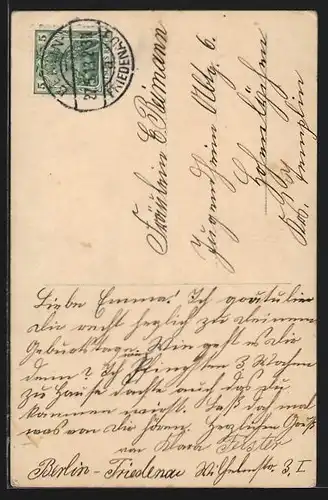 BERLIN
FRIEDENAU
Fräulein E. Reimann
Jugendheim Abtg. 6.
Hohenlychen
Bez. Templin
Liebe Emma! Ich gratuliere
Dir recht herzlich zu Deinem
Geburtstage. Wie geht es Dir
denn? Ich Pfingsten 3 Wochen
zu Hause dachte auch das Du
kommen wirst. Laß doch mal
was von Dir hören. Herzlichen Gruß
von Klara Fester
Berlin-Friedenau Wilhelmstr. 3, I